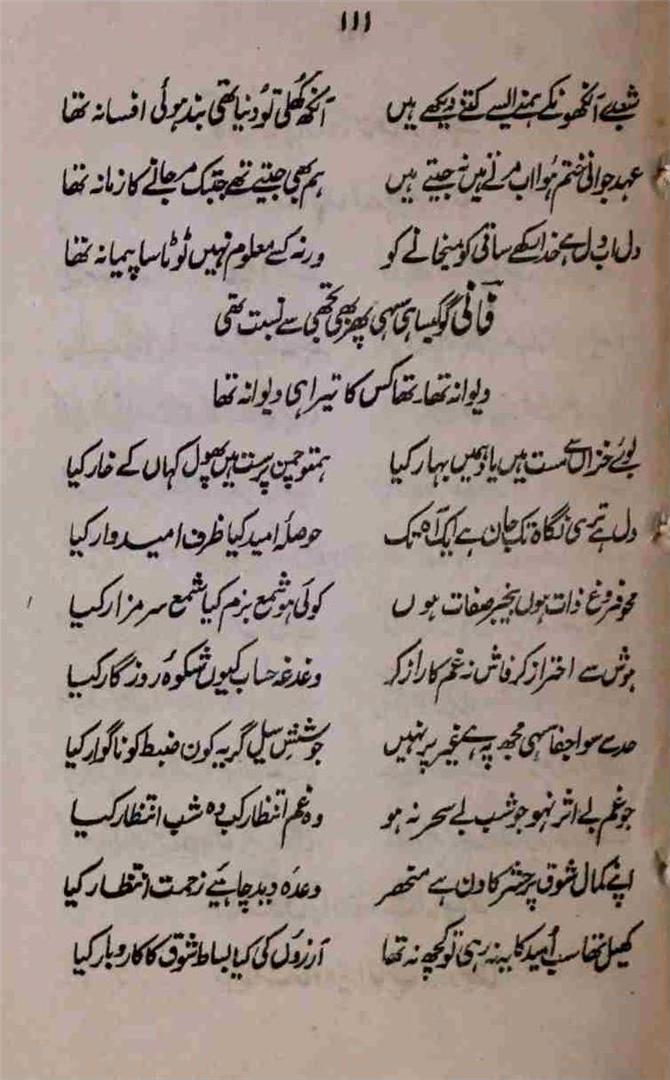 ۱۱۱
شعبدے آنکھونکے ہمنے ایسے کتنے دیکھے ہیں آنکھ کھلی تو دُنیا تھی بند ہوئی افسانہ تھا
عہد جوانی ختم ہُوا اب مرتے ہیں نہ جیتے ہیں ہم بھی جیتے تھے جبتک مرجانے کا زمانہ تھا
دل اب دل ہے خدا رکھے ساقی کو میخانے کو ورنہ کسے معلوم نہیں ٹوٹا سا پیمانہ تھا
فانی گو کیسا ہی سہی پھر بھی تجھی سے نسبت تھی
دیوانہ تھا۔ تھا کس کا تیرا ہی دیوانہ تھا
بوئے خزاں سے مست ہیں یاد ہمیں بہار کیا ہمتو چمن پرست ہیں پھول کہاں کے خار کیا
دل ہے تری نگاہ تک جان ہے ایک آہ تک حوصلۂ امید کیا ظرفِ امیدوار کیا
محو فروغ ذات ہوں بیخبر صفات ہوں کوئی ہو شمع بزم کیا شمع سر مزار کیا
ہوش سے احتراز کر فاش نہ غم کا راز کر دغدغۂ حساب کیوں شکوۂ روزگار کیا
حد سے سوا جفا سہی مجھ پہ ہے غیر پر نہیں جوششِ سیلِ گریہ کون ضبط کو ناگوار کیا
جو غم بے اثر نہو جو شب بے سحر نہ ہو وہ غم انتظار کب وہ شب انتظار کیا
اپنے کمال شوق پر حشر کا دن ہے منحصر وعدۂ دید چاہیے زحمت انتظار کیا
کھیل تھا سب اُمید کا یہ نہ رہی تو کچھ نہ تھا آرزوں کی کیا بساط شوق کا کاروبار کیا